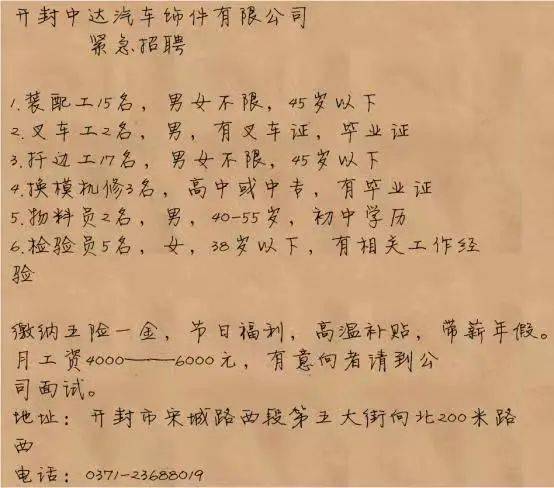 开封中达汽车饰件有限公司
紧急招聘
1.装配工15名，男女不限，45岁以下
2.叉车工2名，男，有叉车证，毕业证
3.扦边工17名，男女不限，45岁以下
4.换模机修3名，高中或中专，有毕业证
5.物料员2名，男，40-55岁，初中学历
6.检验员5名，女，38岁以下，有相关工作经
验
缴纳五险一金，节日福利，高温补贴，带薪年假。
月工资4000——6000元，有意向者请到公
司面试。
地址：开封市宋城路西段第五大街向北200米路
西
电话：0371-23688019